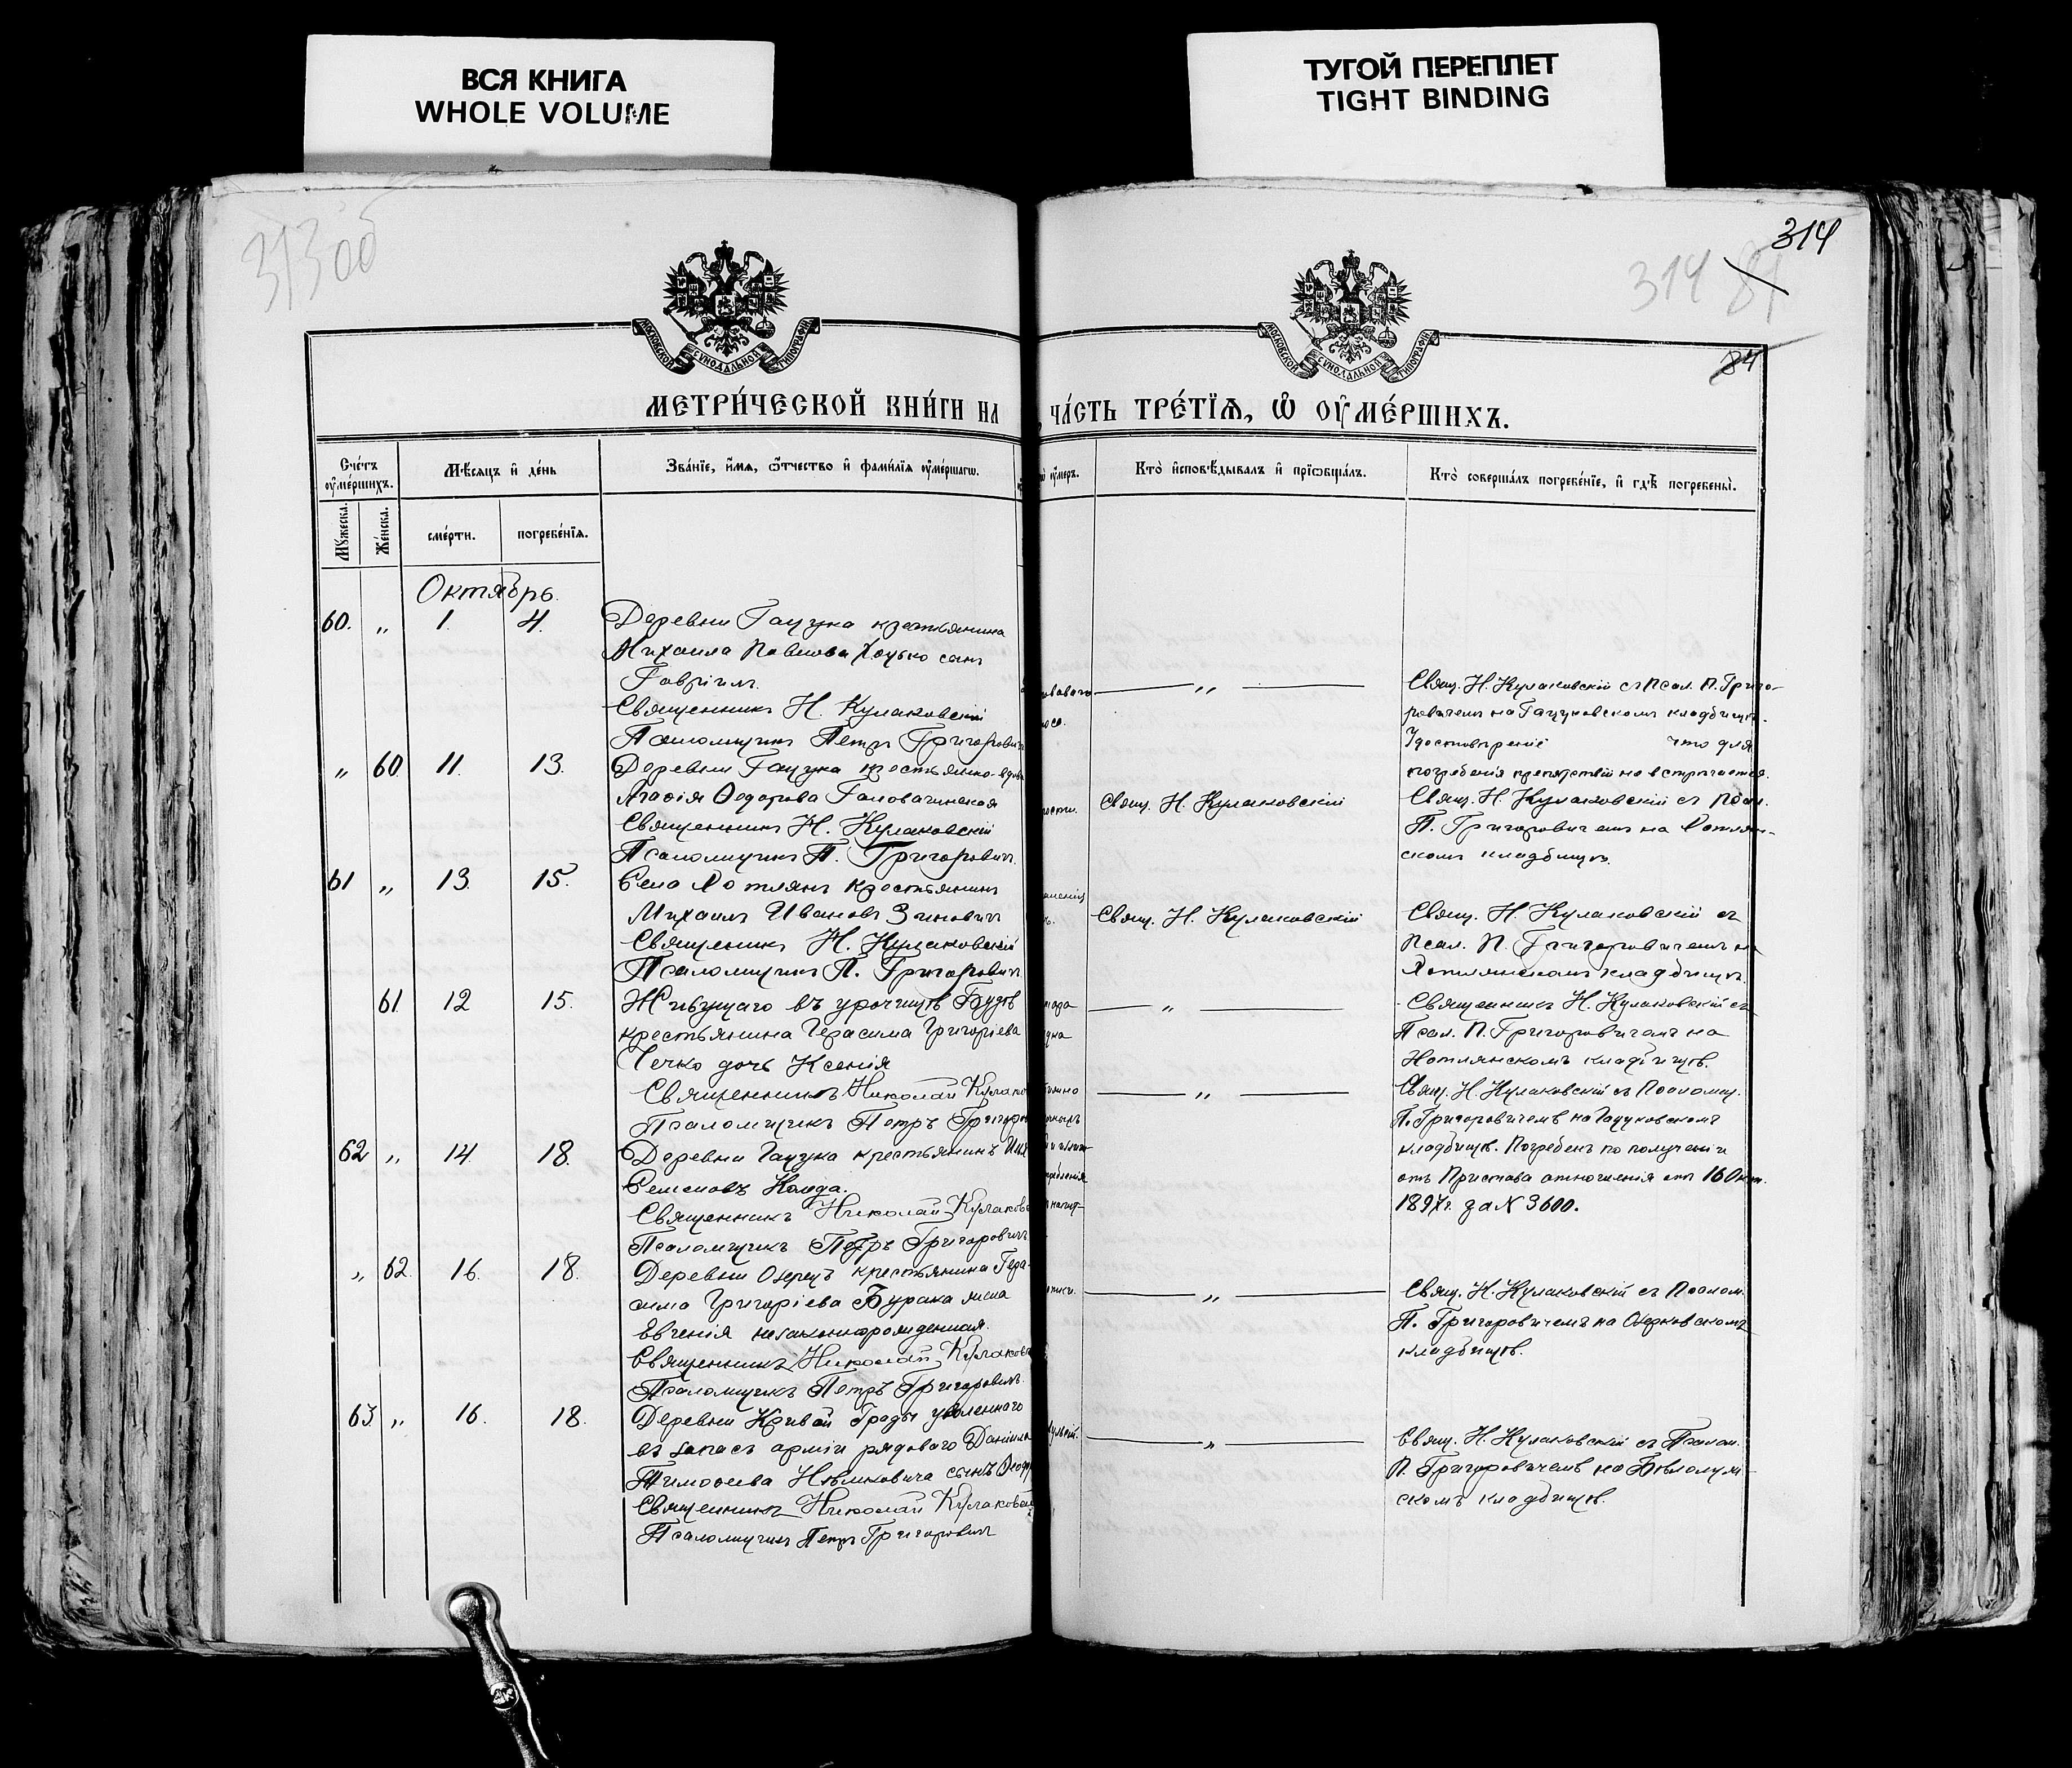 ВСЯ КНИГА
WHOLE VOLUME
ТУГОЙ ПЕРЕПЛЕТ
TIGHT BINDING
313об
314
314 81
84
МОСКОВСКОЙ СѴНОДАЛЬНОЙ ТИПОГРАФІИ
МОСКОВСКОЙ СѴНОДАЛЬНОЙ ТИПОГРАФІИ
МЕТРИ́ЧЕСКОЙ КНИ́ГИ НА
ЧА́СТЬ ТРЕ́ТЇѦ, Ѡ ОУ҆МЕ́РШИХЪ.
Сче́тъ оу҆ме́ршихъ.
Мѣ́сяцъ и҆ де́нь
Зва́нїе, и҆́мѧ, ѻ҆́тчество и҆ фами́лїѧ оу҆ме́ршагѡ.
оу҆́меръ.
Кто̀ и҆сповѣ́дывалъ и҆ прїѡбща́лъ.
Кто̀ соверша́лъ погребе́нїе, и҆ гдѣ̀ погребены̀.
Мꙋ́жеска.
Же́нска.
сме́рти.
погребе́нїѧ.
Октябрь.
60. „ 1. 4. Деревни Гацука крестьянина
Михаила Павлова сынъ
Гавріилъ.
Священникъ Н. Кулаковскій
Псаломщикъ Петръ Григоровичъ
— „ —
Свящ. Н. Кулаковскій съ Псал. П. Григо-
ровичемъ на Гацуковскомъ кладбищѣ.
Удостовѣреніе что для
погребенія препятствій не встрѣчается.
„ 60 11. 13. Деревни Гацука крестьянка-вдова
Агафія Ѳедорова Головачинская
Священникъ Н. Кулаковскій
Псаломщикъ П. Григоровичъ.
Свящ. Н. Кулаковскій
Свящ. Н. Кулаковскій съ Псал.
П. Григоровичемъ на Хотлян-
скомъ кладбищѣ.
61 „ 13. 15. Села Хотлянъ крестьянинъ
Михаилъ Ивановъ Зиновичъ
Священникъ Н. Кулаковскій
Псаломщикъ П. Григоровичъ
Свящ. Н. Кулаковскій
Свящ. Н. Кулаковскій съ
Псал. П. Григоровичемъ на
Хотлянскомъ кладбищѣ.
61 12 15. Живущаго въ урочищѣ Будѣ
крестьянина Герасима Григоріева
Чечко дочь Ксенія
Священникъ Николай
Псаломщикъ Петръ
— „ —
Священникъ Н. Кулаковскій съ
Псал. П. Григоровичемъ на
Хотлянскомъ кладбищѣ.
62 „ 14. 18. Деревни Гацука крестьянинъ
Семеновъ
Священникъ Николай
Псаломщикъ Петръ Григоровичъ
— „ —
Свящ. Н. Кулаковскій съ Псаломщ.
П. Григоровичемъ на Гацуковскомъ
кладбищѣ. Погребенъ по полученіи
отъ Пристава отношенія отъ 16 Окт.
1897 г. за № 3600.
„ 62 16. 18. Деревни Озерецъ крестьянина Гера-
сима Григоріева Бурака
Евгенія незаконнорожденная.
Священникъ Николай
Псаломщикъ Петръ Григоровичъ.
— „ —
Свящ. Н. Кулаковскій съ Псалом.
П. Григоровичемъ на Озерковскомъ
кладбищѣ.
63 „ 16. 18. Деревни Кривой Гряды уволеннаго
въ запасъ арміи рядоваго Даніила
Тимофеева сынъ
Священникъ Николай
Псаломщикъ Петръ Григоровичъ
— „ —
Свящ. Н. Кулаковскій съ Псалом.
П. Григоровичемъ на
скомъ кладбищѣ.